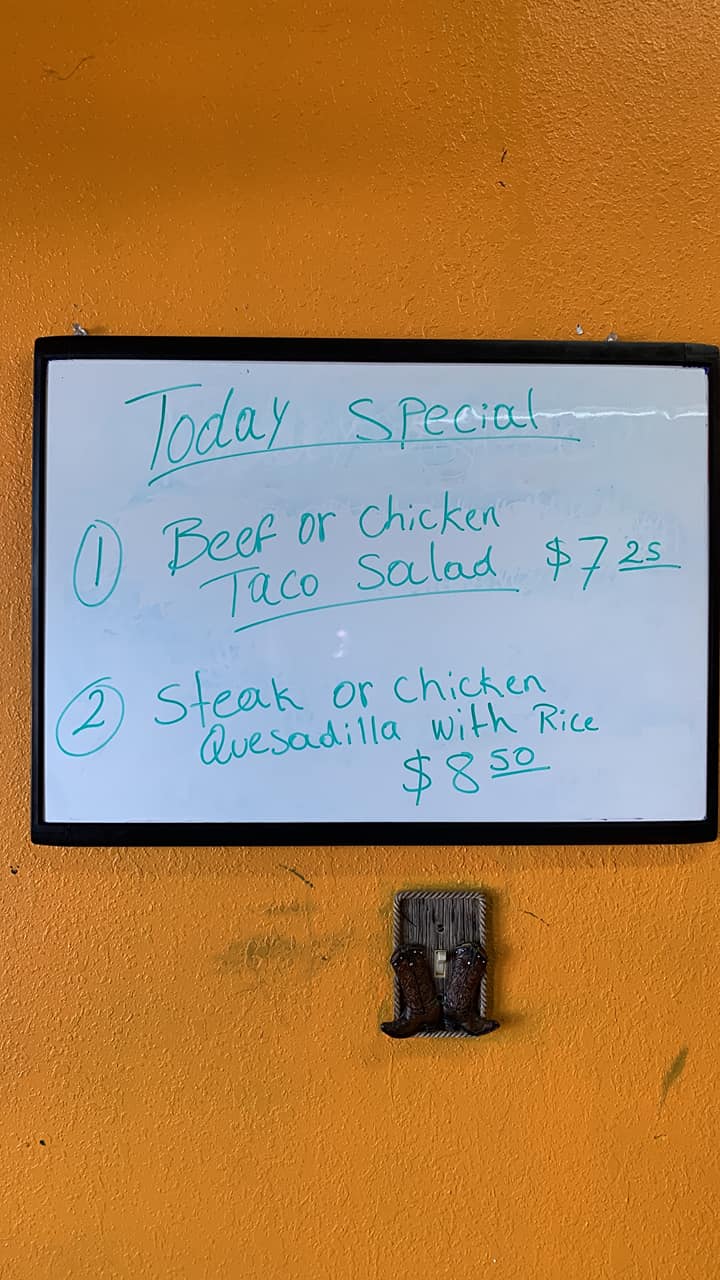 Today Special
① Beef or Chicken
Taco Salad $7 25
② Steak or Chicken
Quesadilla with Rice
$8 50